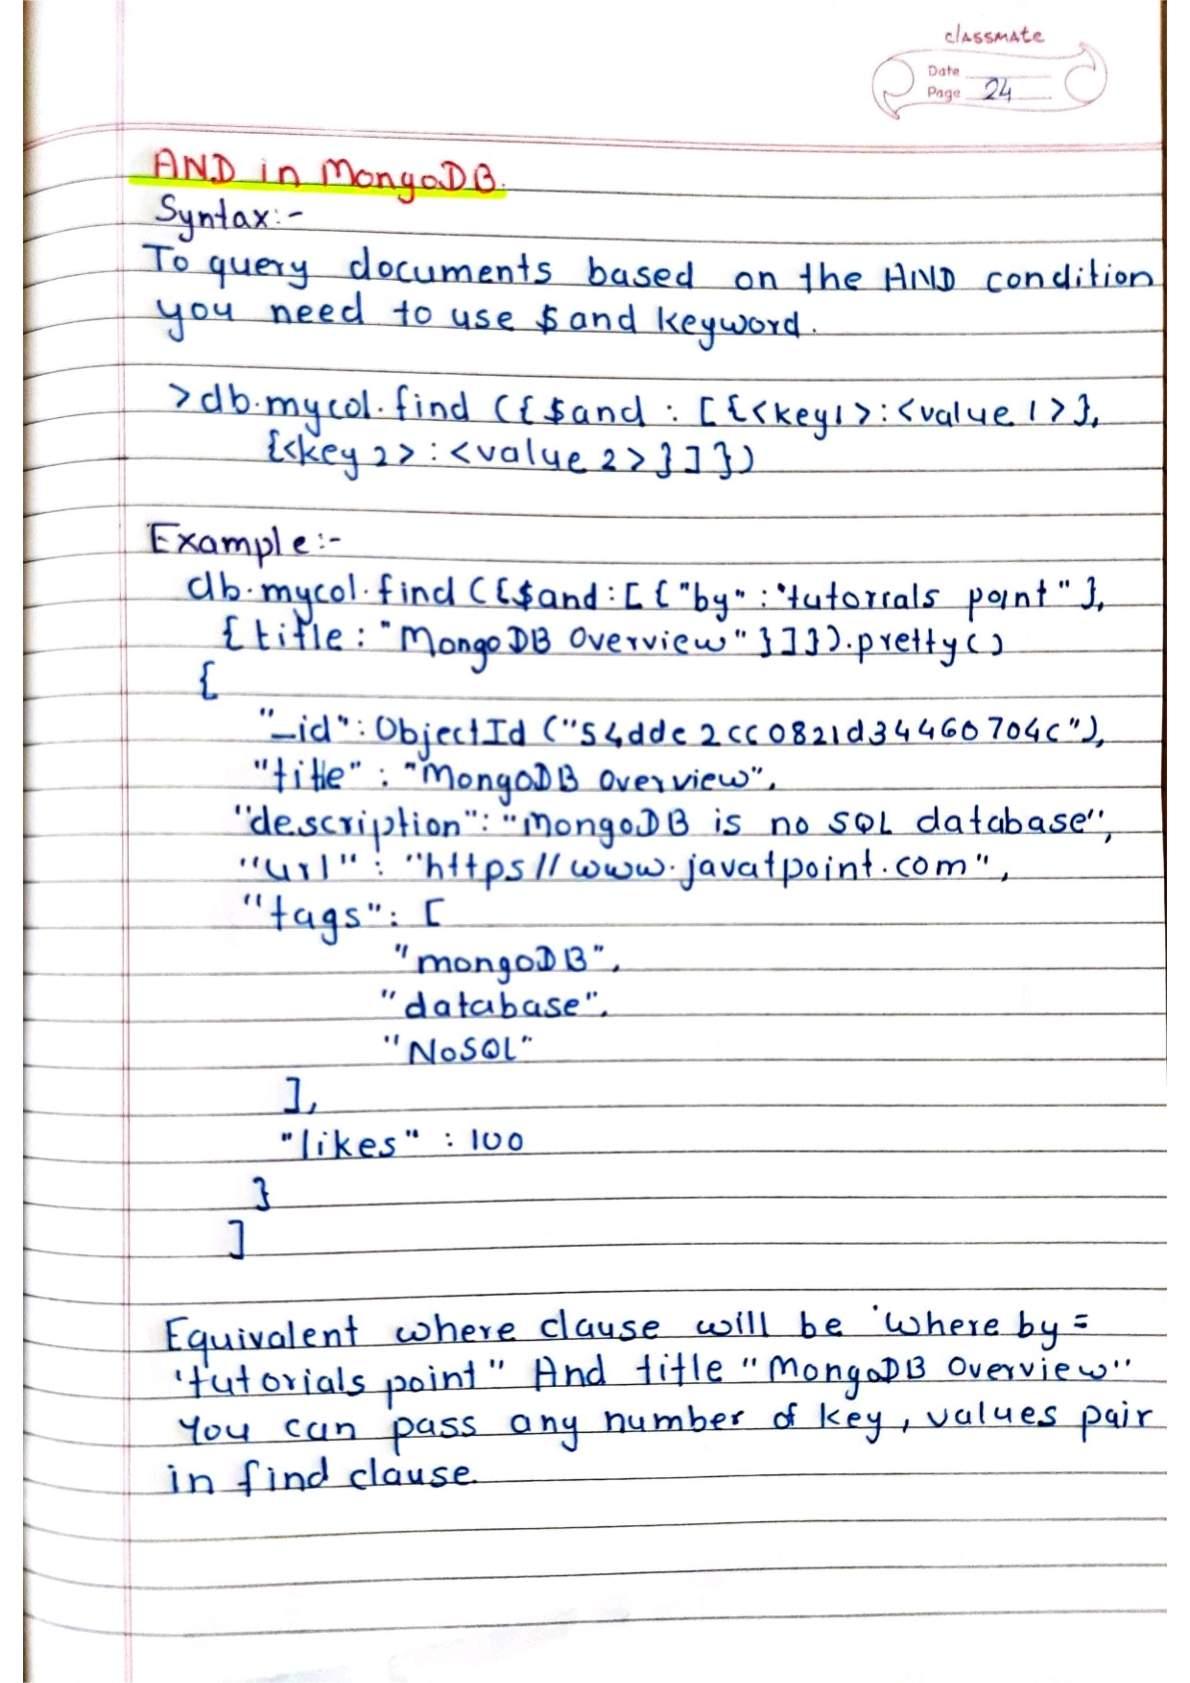 classmate
Date
Page 24
AND in MongoDB.
Syntax:-
To query documents based on the AND condition
you need to use $and keyword.
>db.mycol.find ({$and : [{<key1>:<value1>},
{<key2>:<value2>}]})
Example:-
db.mycol.find({$and:[{"by":"tutorials point"},
{title: "MongoDB Overview"}]}).pretty()
{
"_id": ObjectId ("54ddc2cc0821d34460704c"),
"title" : "MongoDB Overview",
"description": "MongoDB is no SQL database",
"url" : "https//www.javatpoint.com",
"tags": [
"mongoDB",
"database",
"NoSQL"
],
"likes" : 100
}
]
Equivalent where clause will be 'where by =
'tutorials point" And title "MongoDB Overview"
You can pass any number of key, values pair
in find clause.